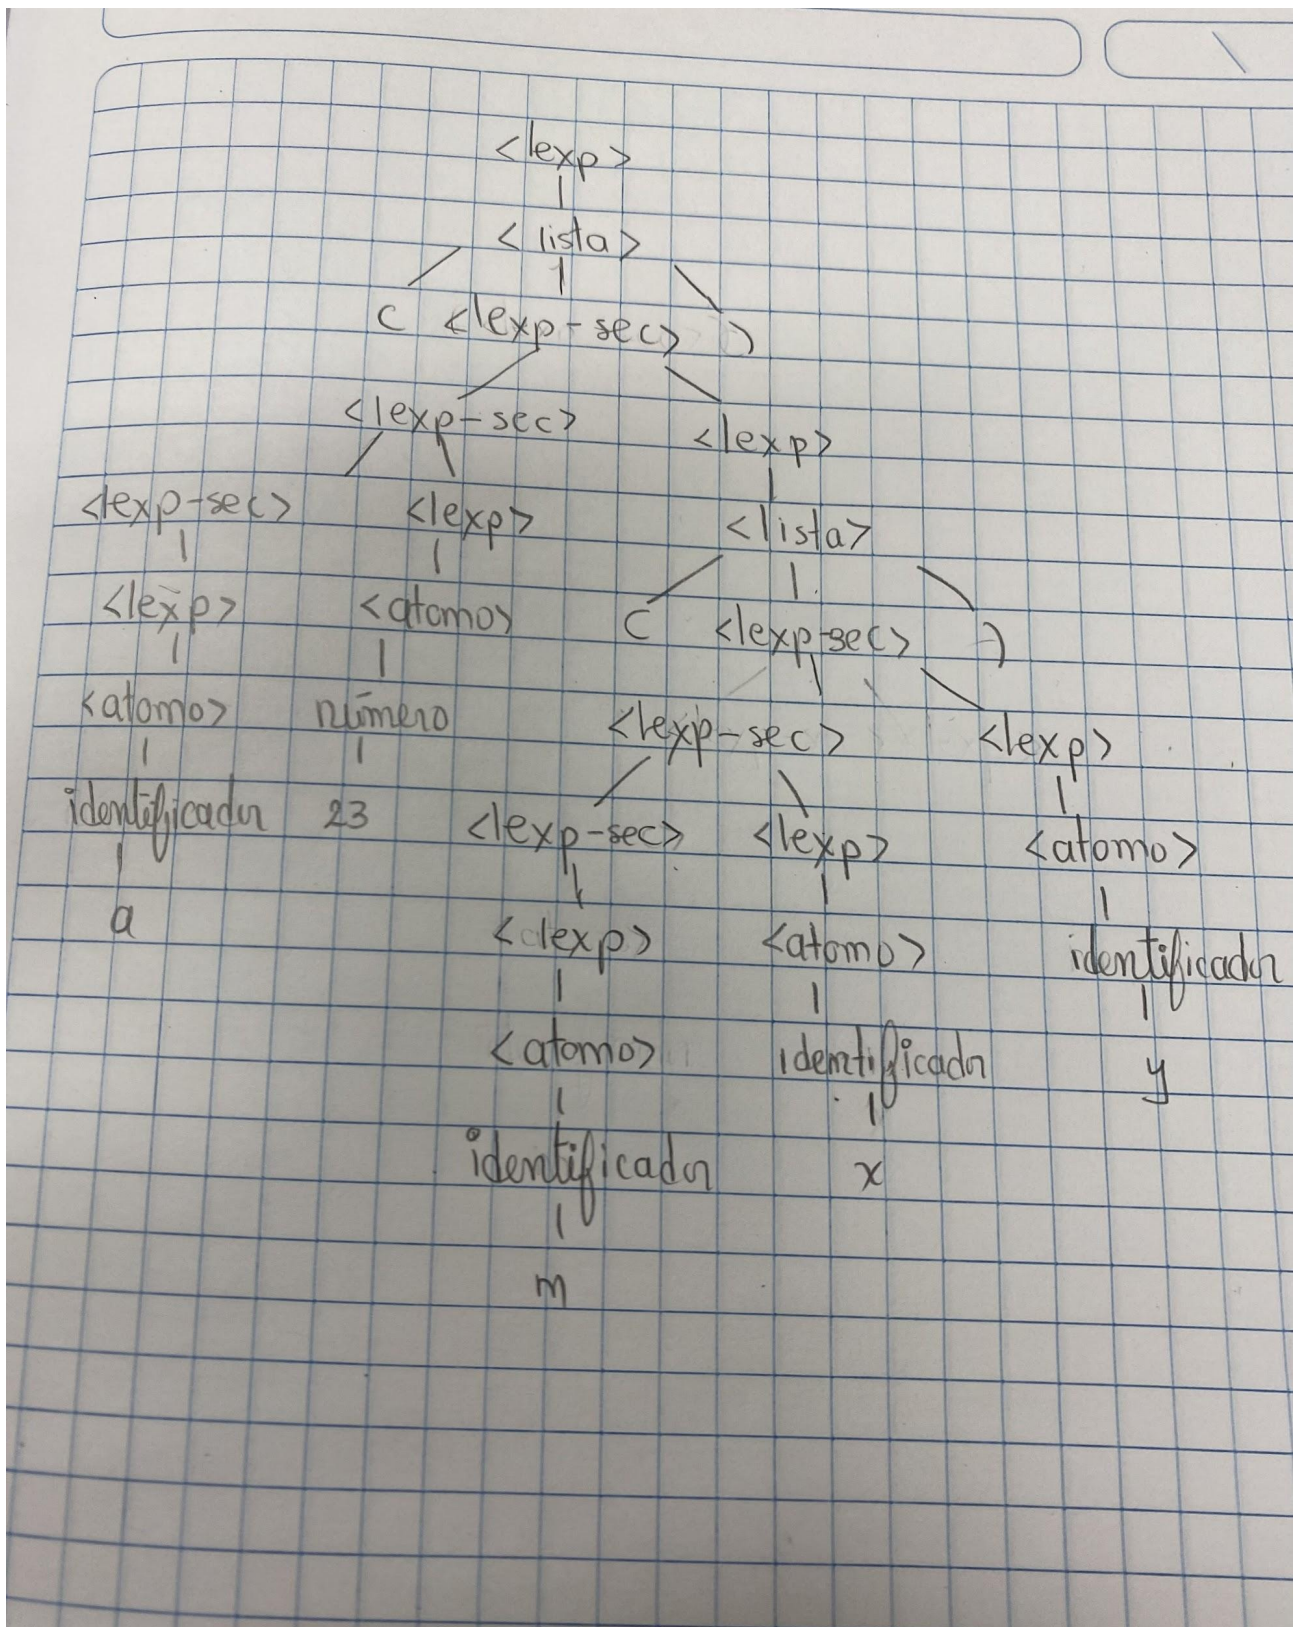 <lexp>
<lista>
( <lexp-sec> )
<lexp-sec> <lexp>
<lexp-sec> <lexp> <lista>
<lexp> <atomo> ( <lexp-sec> )
<atomo> número <lexp-sec> <lexp>
identificador 23 <lexp-sec> <lexp> <atomo>
a <lexp> <atomo> identificador
<atomo> identificador y
identificador x
m